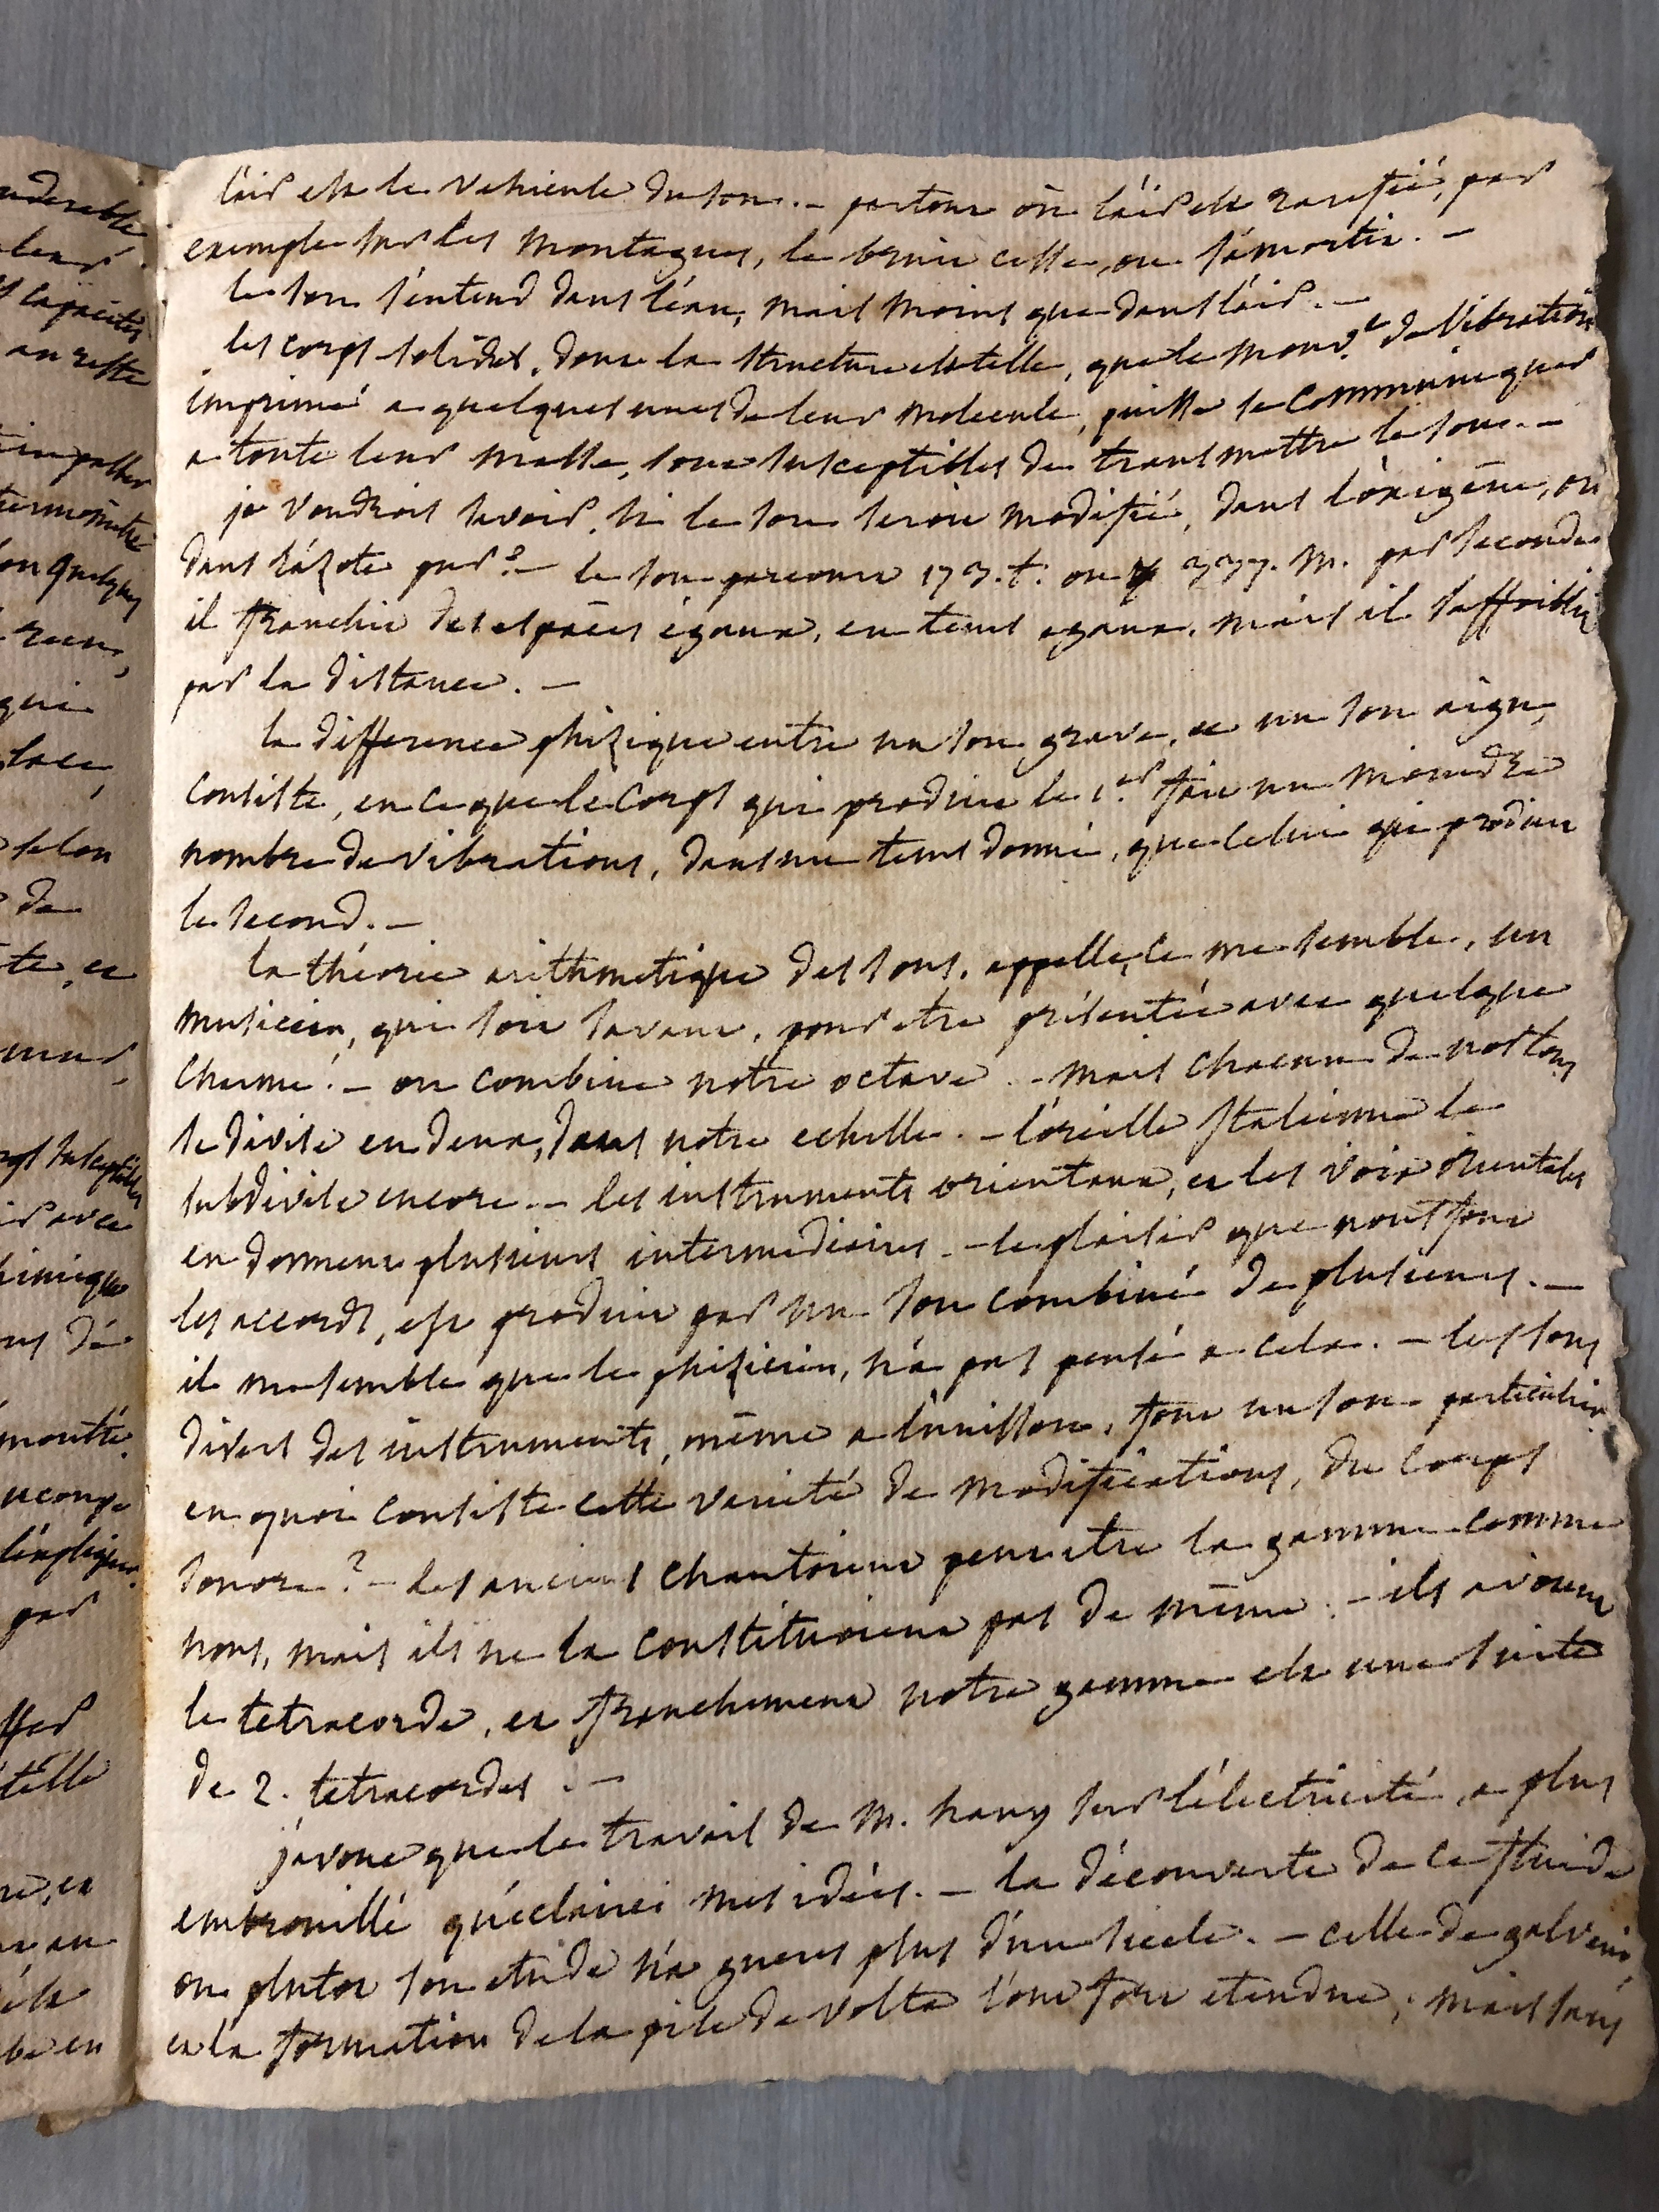 l'air est le vehicule du son. – partout où l'air est rarefié, par
exemple sur les montagnes, le bruit cesse, ou s'amortit. –
le son s'entend dans l'eau, mais moins que dans l'air. –
les corps solides, dont la structure est telle, que le mouv.t de vibration
imprimé a quelques unes de leur molecule, puisse se communiquer
a toute leur masse, sont susceptibles de transmettre le son. –
je voudrois savoir, si le son seroit modifié, dans l'oxigène, ou
dans l'azote pur? – le son parcourt 173. t. ou 337. m. par seconde
il franchit des espaces égaux, en tems egaux, mais il s'affoiblit
par la distance. –
la difference phizique entre un son grave, et un son aigu,
consiste, en ce que le corps qui produit le 1.er fait un moindre
nombre de vibrations, dans un tems donné, que celui qui produit
le second. –
la théorie arithmetique des sons, appelle, ce me semble, un
musicien, qui soit savant, pour etre présentée avec quelque
charme. – on combine notre octave. – mais chacun de nos tons
se divise en deux, dans notre echelle. – l'oreille Italienne le
subdivise encore. – les instruments orientaux, et les voix orientales
en donnent plusieurs intermediaires. – le plaisir que nous font
les accords, est produit par un son combiné de plusieurs. –
il me semble que le phizicien, n'a pas pensé a cela. – les sons
divers des instruments, même a l'unisson, font un son particulier
en quoi consiste cette varieté de modifications, du corps
sonore? – les anciens chantoient peut etre la gamme comme
nous, mais ils ne la constituoient pas de même. – ils avoient
le tetracorde, et franchement notre gamme est une suite
de 2. tetracordes. –
j'avoue que le travail de M. hauy sur l'électricité, a plus
embrouillé qu'eclairci mes idées. – la découverte de ce fluide
ou plutot son etude n'a gueres plus d'un siecle. – celle de galvani,
et la formation de la pile de volta l'ont fort etendue, mais sans